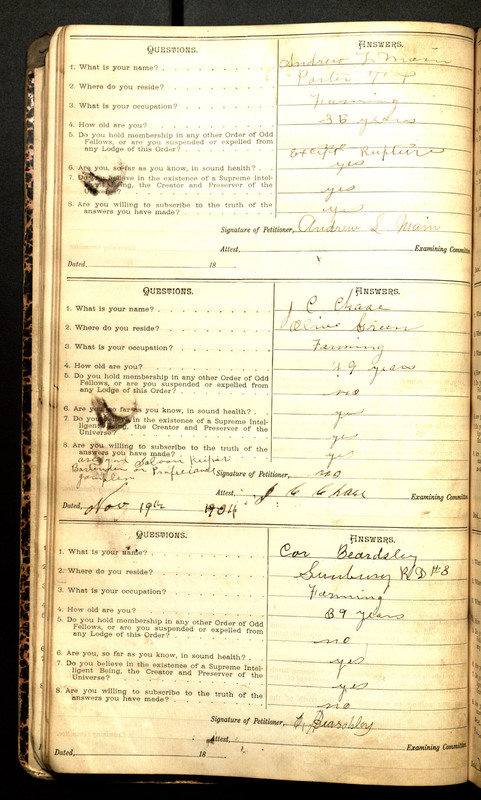 QUESTIONS. ANSWERS.
1. What is your name? Andrew L. Main
2. Where do you reside? Porter
3. What is your occupation? Farming
4. How old are you? 36 years
5. Do you hold membership in any other Order of Odd
Fellows, or are you suspended or expelled from
any Lodge of this Order? Except Rupture
6. Are you, so far as you know, in sound health? yes
7. Do you believe in the existence of a Supreme Intel-
ligent Being, the Creator and Preserver of the
yes
8. Are you willing to subscribe to the truth of the
answers you have made? yes
Signature of Petitioner, Andrew L. Main
Attest, Examining Committee
Dated, 18
QUESTIONS. ANSWERS.
1. What is your name? J C Chase
2. Where do you reside? Olive Green
3. What is your occupation? Farming
4. How old are you? 49 years
5. Do you hold membership in any other Order of Odd
Fellows, or are you suspended or expelled from
any Lodge of this Order? no
6. Are you, so far as you know, in sound health? yes
7. Do you believe in the existence of a Supreme Intel-
ligent Being, the Creator and Preserver of the
Universe? yes
8. Are you willing to subscribe to the truth of the
answers you have made? yes
are you a Saloon Keeper
Bartender or Professional
gambler
Signature of Petitioner, no
Attest, J C Chase Examining Committee
Dated, Nov 19th 1904
QUESTIONS. ANSWERS.
1. What is your name? Cor Beardsley
2. Where do you reside? Sunbury R D #3
3. What is your occupation? Farming
4. How old are you? 39 years
5. Do you hold membership in any other Order of Odd
Fellows, or are you suspended or expelled from
any Lodge of this Order? no
6. Are you, so far as you know, in sound health? yes
7. Do you believe in the existence of a Supreme Intel-
ligent Being, the Creator and Preserver of the
Universe? yes
8. Are you willing to subscribe to the truth of the
answers you have made? no
Signature of Petitioner, C. Beardsley
Attest, Examining Committee
Dated, 18